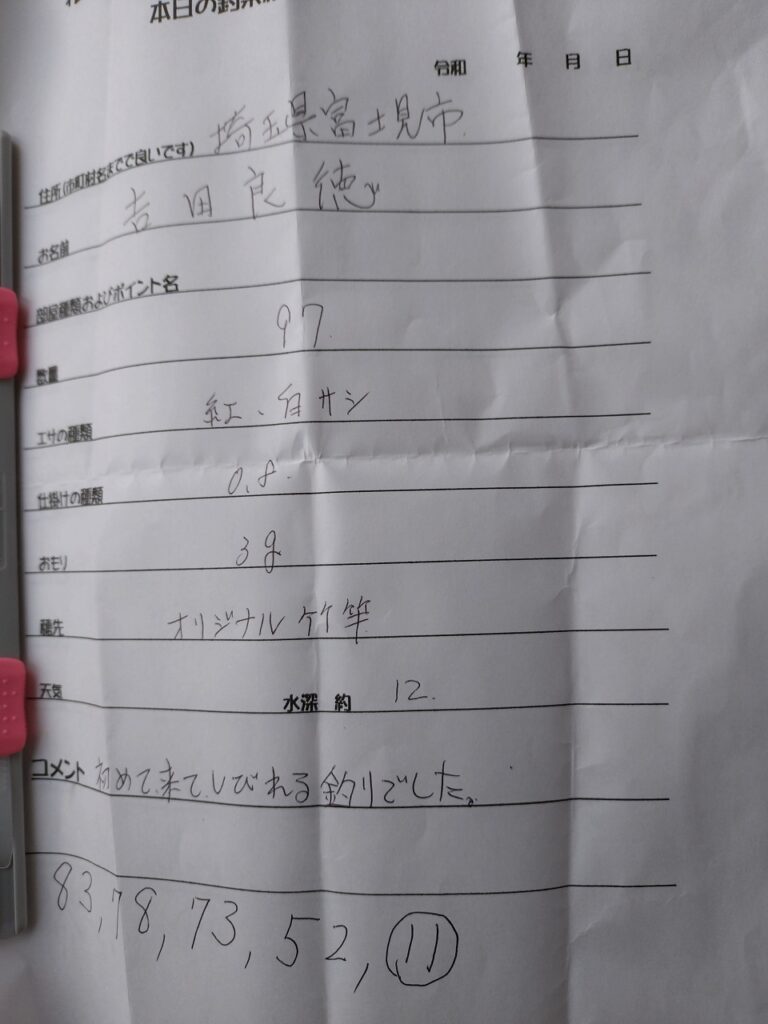 本日の釣果
令和 年 月 日
住所(市町村名までで良いです) 埼玉県富士見市
お名前 吉田良徳
部屋種類およびポイント名
数量 97
エサの種類 紅、白サシ
仕掛けの種類 0.8
おもり 3g
穂先 オリジナル竹竿
天気 水深 約 12.
コメント 初めて来てしびれる釣りでした。
83, 78, 73, 52, 11